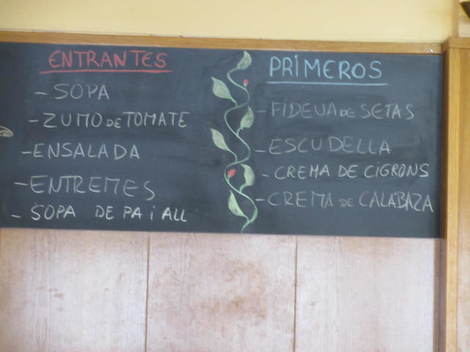 ENTRANTES
- SOPA
- ZUMO DE TOMATE
- ENSALADA
- ENTREMES
- SOPA DE PA i ALL
PRIMEROS
- FIDEUA DE SETAS
- ESCUDELLA
- CREMA DE CIGRONS
- CREMA DE CALABAZA